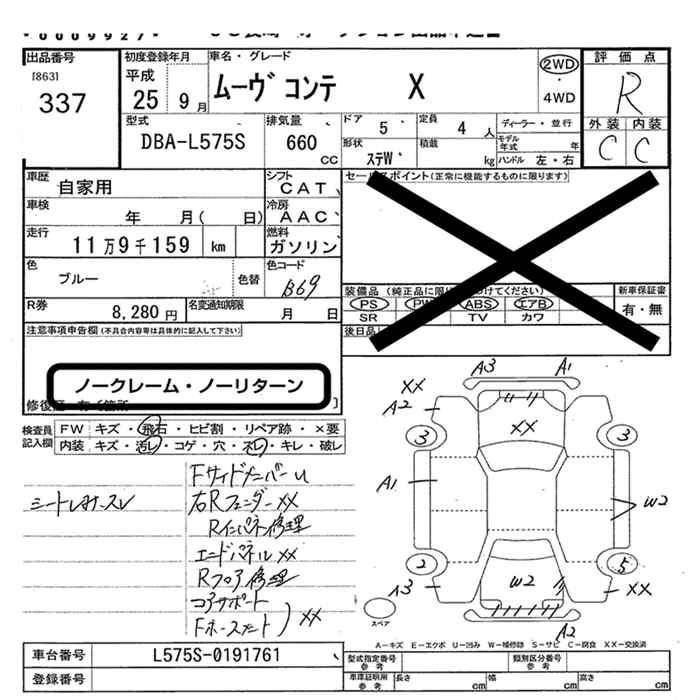 出品番号
[863]
337
初度登録年月
平成
25 9 月
車名・グレード
ムーヴ コンテ X
2WD
・
4WD
評価点
R
外装 内装
C C
型式
DBA-L575S
排気量
660 CC
ドア
5
定員
4 人
ディーラー・並行
モデル年式 年
形状
ステW
積載
kg
ハンドル 左・右
車歴
自家用
シフト
CAT
車検
年 月( 日)
冷房
AAC
走行
11万9千159 km
燃料
ガソリン
色
ブルー
色替
色コード
B69
R券
8,280 円
名変通知期限
月 日
セールスポイント(正常に機能するものに限ります)
装備品
PS PW ABS エアB
SR TV カワ
後日品
新車保証書
有・無
注意事項申告欄(不具合内容等は具体的に記入して下さい)
ノークレーム・ノーリターン
検査員記入欄
FW キズ・飛石・ヒビ割・リペア跡・×要
内装 キズ・汚レ・コゲ・穴・スレ・キレ・破レ
Fサイドメンバーu
右Rフェンダー××
Rインパネ修理
エンドパネル××
Rフロア修理
コアサポート
Fホースメント )××
A3 A1
XX
A2
3 3
XX
A1
W2
2 5
W2
A3
XX
A2
スペア
A-キズ E-エクボ U-凹み W-補修跡 S-サビ C-腐食 XX-交換済
車台番号
L575S-0191761
登録番号
型式指定番号
参考
類別区分番号
参考
車庫証明用
参考
長さ cm
幅 cm
高さ cm